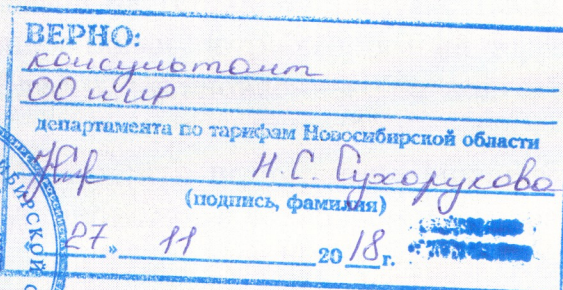 ВЕРНО:
консультант
ОО и ИР
департамента по тарифам Новосибирской области
Н.С. Сухорукова
(подпись, фамилия)
27 » 11 20 18 г.
БИРСКОЙ